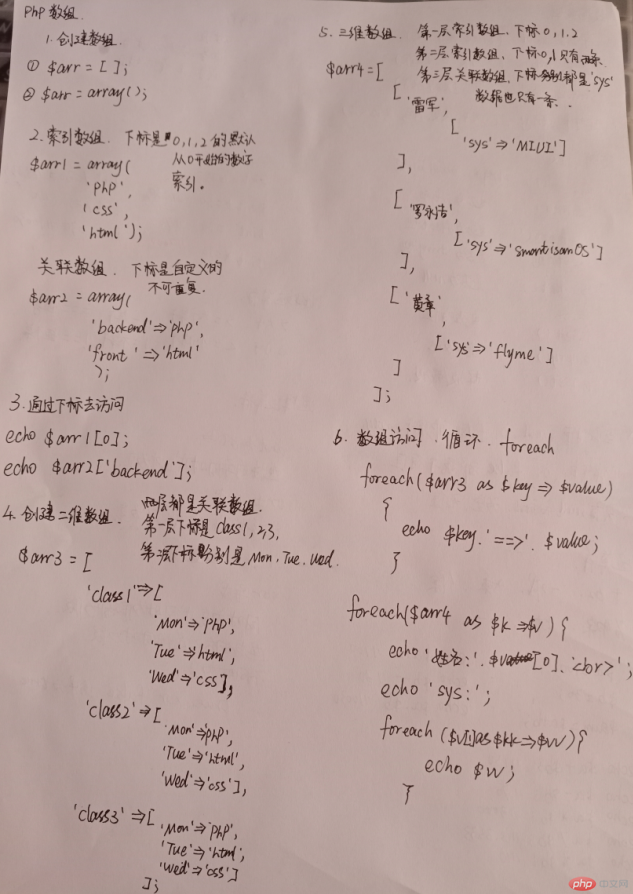 PhP 数组.
1. 创建数组.
① $arr = [ ];
② $arr = array();
2. 索引数组. 下标是 0,1,2 的默认
从0开始的数字
索引。
$arr1 = array(
'PhP',
'css',
'html');
关联数组. 下标是自定义的
不可重复.
$arr2 = array(
'backend'=>'php',
'front' =>'html'
);
3. 通过下标去访问
echo $arr1[0];
echo $arr2['backend'];
4. 创建二维数组. 两层都是关联数组.
第一层下标是class1,2,3,
第二层下标分别是Mon, Tue, Wed.
$arr3 = [
'class1'=>[
'Mon'=>'PhP',
'Tue'=>'html',
'Wed'=>'css'],
'class2'=>[
'Mon'=>'PhP',
'Tue'=>'html',
'Wed'=>'css'],
'class3'=>[
'Mon'=>'PhP',
'Tue'=>'html',
'Wed'=>'css']
];
5. 三维数组. 第一层索引数组、下标0,1,2
第二层索引数组、下标0,1只有两条.
第三层关联数组,下标分别都是'sys'
数据也只有一条.
$arr4=[
['雷军',
['sys'=>'MIUI']
],
['罗永浩',
['sys'=>'smartisanOS']
],
['黄章',
['sys'=>'flyme']
]
];
6. 数组访问.循环. foreach
foreach($arr3 as $key => $value)
{
echo $key.'==>'. $value;
}
foreach($arr4 as $k =>$v) {
echo '姓名:'.$v[0].'<br>';
echo 'sys:';
foreach ($v[1]as $kk=>$vv){
echo $vv;
}
php 中文网